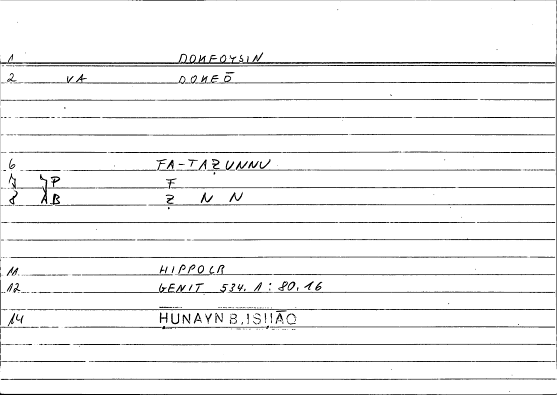 1 DOKEOYSIN
2 VA DOKEŌ
6 FA-TAẒUNNU
7 P F
8 AB Ẓ N N
11 HIPPOCR
12 GENIT 534. A: 80, 16
14 ḤUNAYN B. ISḤĀQ